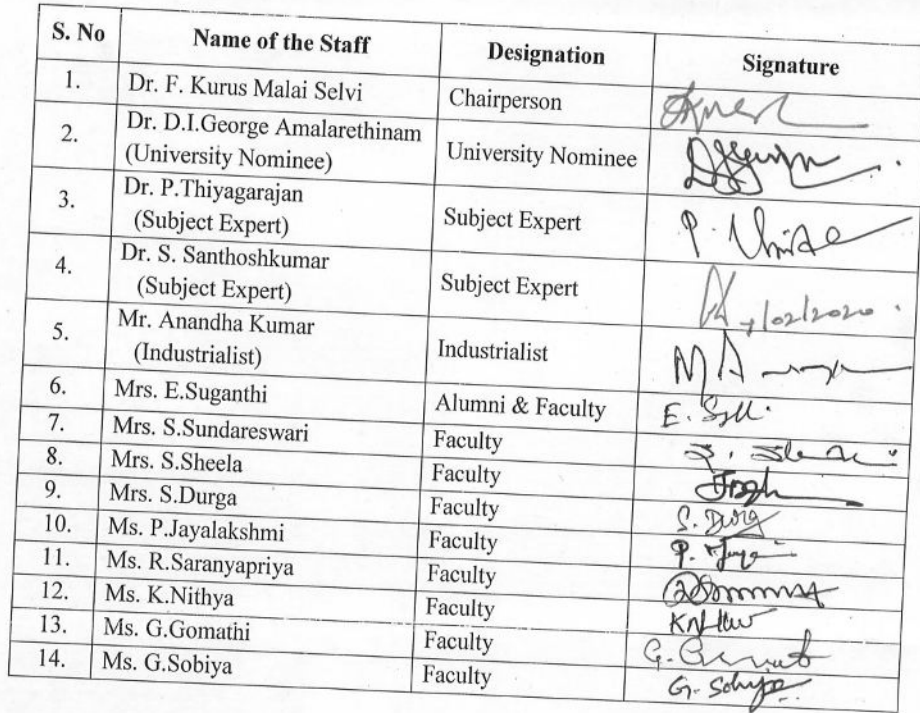 S. No Name of the Staff Designation Signature
1. Dr. F. Kurus Malai Selvi Chairperson
2. Dr. D.I.George Amalarethinam University Nominee
(University Nominee)
3. Dr. P.Thiyagarajan Subject Expert P.
(Subject Expert)
4. Dr. S. Santhoshkumar Subject Expert 7/02/2020.
(Subject Expert)
5. Mr. Anandha Kumar Industrialist
(Industrialist)
6. Mrs. E.Suganthi Alumni & Faculty E.
7. Mrs. S.Sundareswari Faculty
8. Mrs. S.Sheela Faculty
9. Mrs. S.Durga Faculty S. Durga
10. Ms. P.Jayalakshmi Faculty P.
11. Ms. R.Saranyapriya Faculty
12. Ms. K.Nithya Faculty
13. Ms. G.Gomathi Faculty G.
14. Ms. G.Sobiya Faculty G.